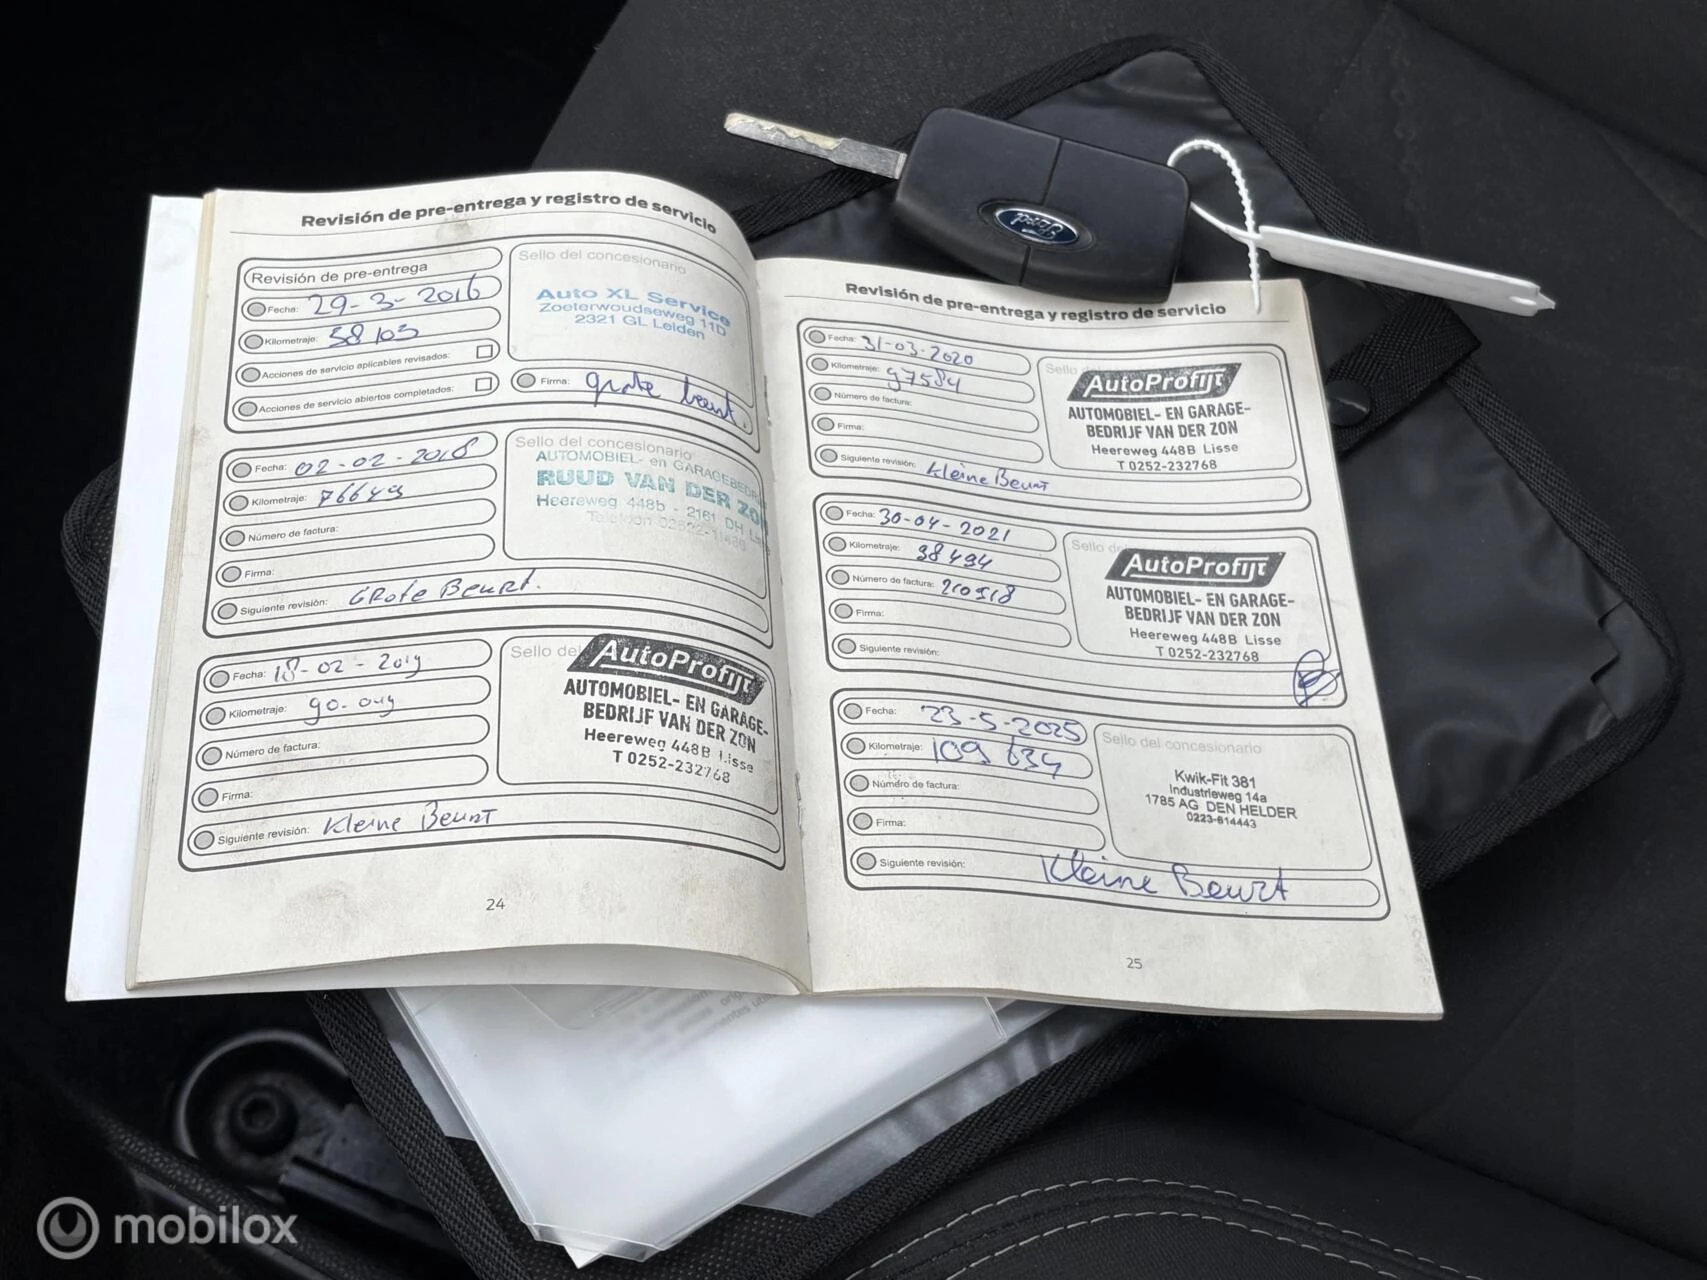 Revisión de pre-entrega y registro de servicio
Revisión de pre-entrega
Fecha: 29-3-2016
Kilometraje: 58103
Acciones de servicio aplicables revisados:
Acciones de servicio abiertos completados:
Sello del concesionario
Auto XL Service
Zoeterwoudseweg 11D
2321 GL Leiden
Firma: grote beurt.
Fecha: 02-02-2018
Kilometraje: 76649
Número de factura:
Firma:
Siguiente revisión: GRote Beurt.
Sello del concesionario
AUTOMOBIEL- en GARAGEBEDR
RUUD VAN DER ZO
Heereweg 448b - 2161 DH Lisse
Telefoon
Fecha: 18-02-2019
Kilometraje: 90.049
Número de factura:
Firma:
Siguiente revisión: Kleine Beurt
Sello del
AutoProfijt
AUTOMOBIEL- EN GARAGE-
BEDRIJF VAN DER ZON
Heereweg 448B Lisse
T 0252-232768
24
Revisión de pre-entrega y registro de servicio
Fecha: 31-03-2020
Kilometraje: 97584
Número de factura:
Firma:
Siguiente revisión: Kleine Beurt
Sello
AutoProfijt
AUTOMOBIEL- EN GARAGE-
BEDRIJF VAN DER ZON
Heereweg 448B Lisse
T 0252-232768
Fecha: 30-04-2021
Kilometraje: 98494
Número de factura: 210518
Firma:
Siguiente revisión:
Sello del concesionario
AutoProfijt
AUTOMOBIEL- EN GARAGE-
BEDRIJF VAN DER ZON
Heereweg 448B Lisse
T 0252-232768
Fecha: 23-5-2025
Kilometraje: 109 634
Número de factura:
Firma:
Siguiente revisión: Kleine Beurt
Sello del concesionario
Kwik-Fit 381
Industrieweg 14a
1785 AG DEN HELDER
0223-614443
25
Ford
mobilox